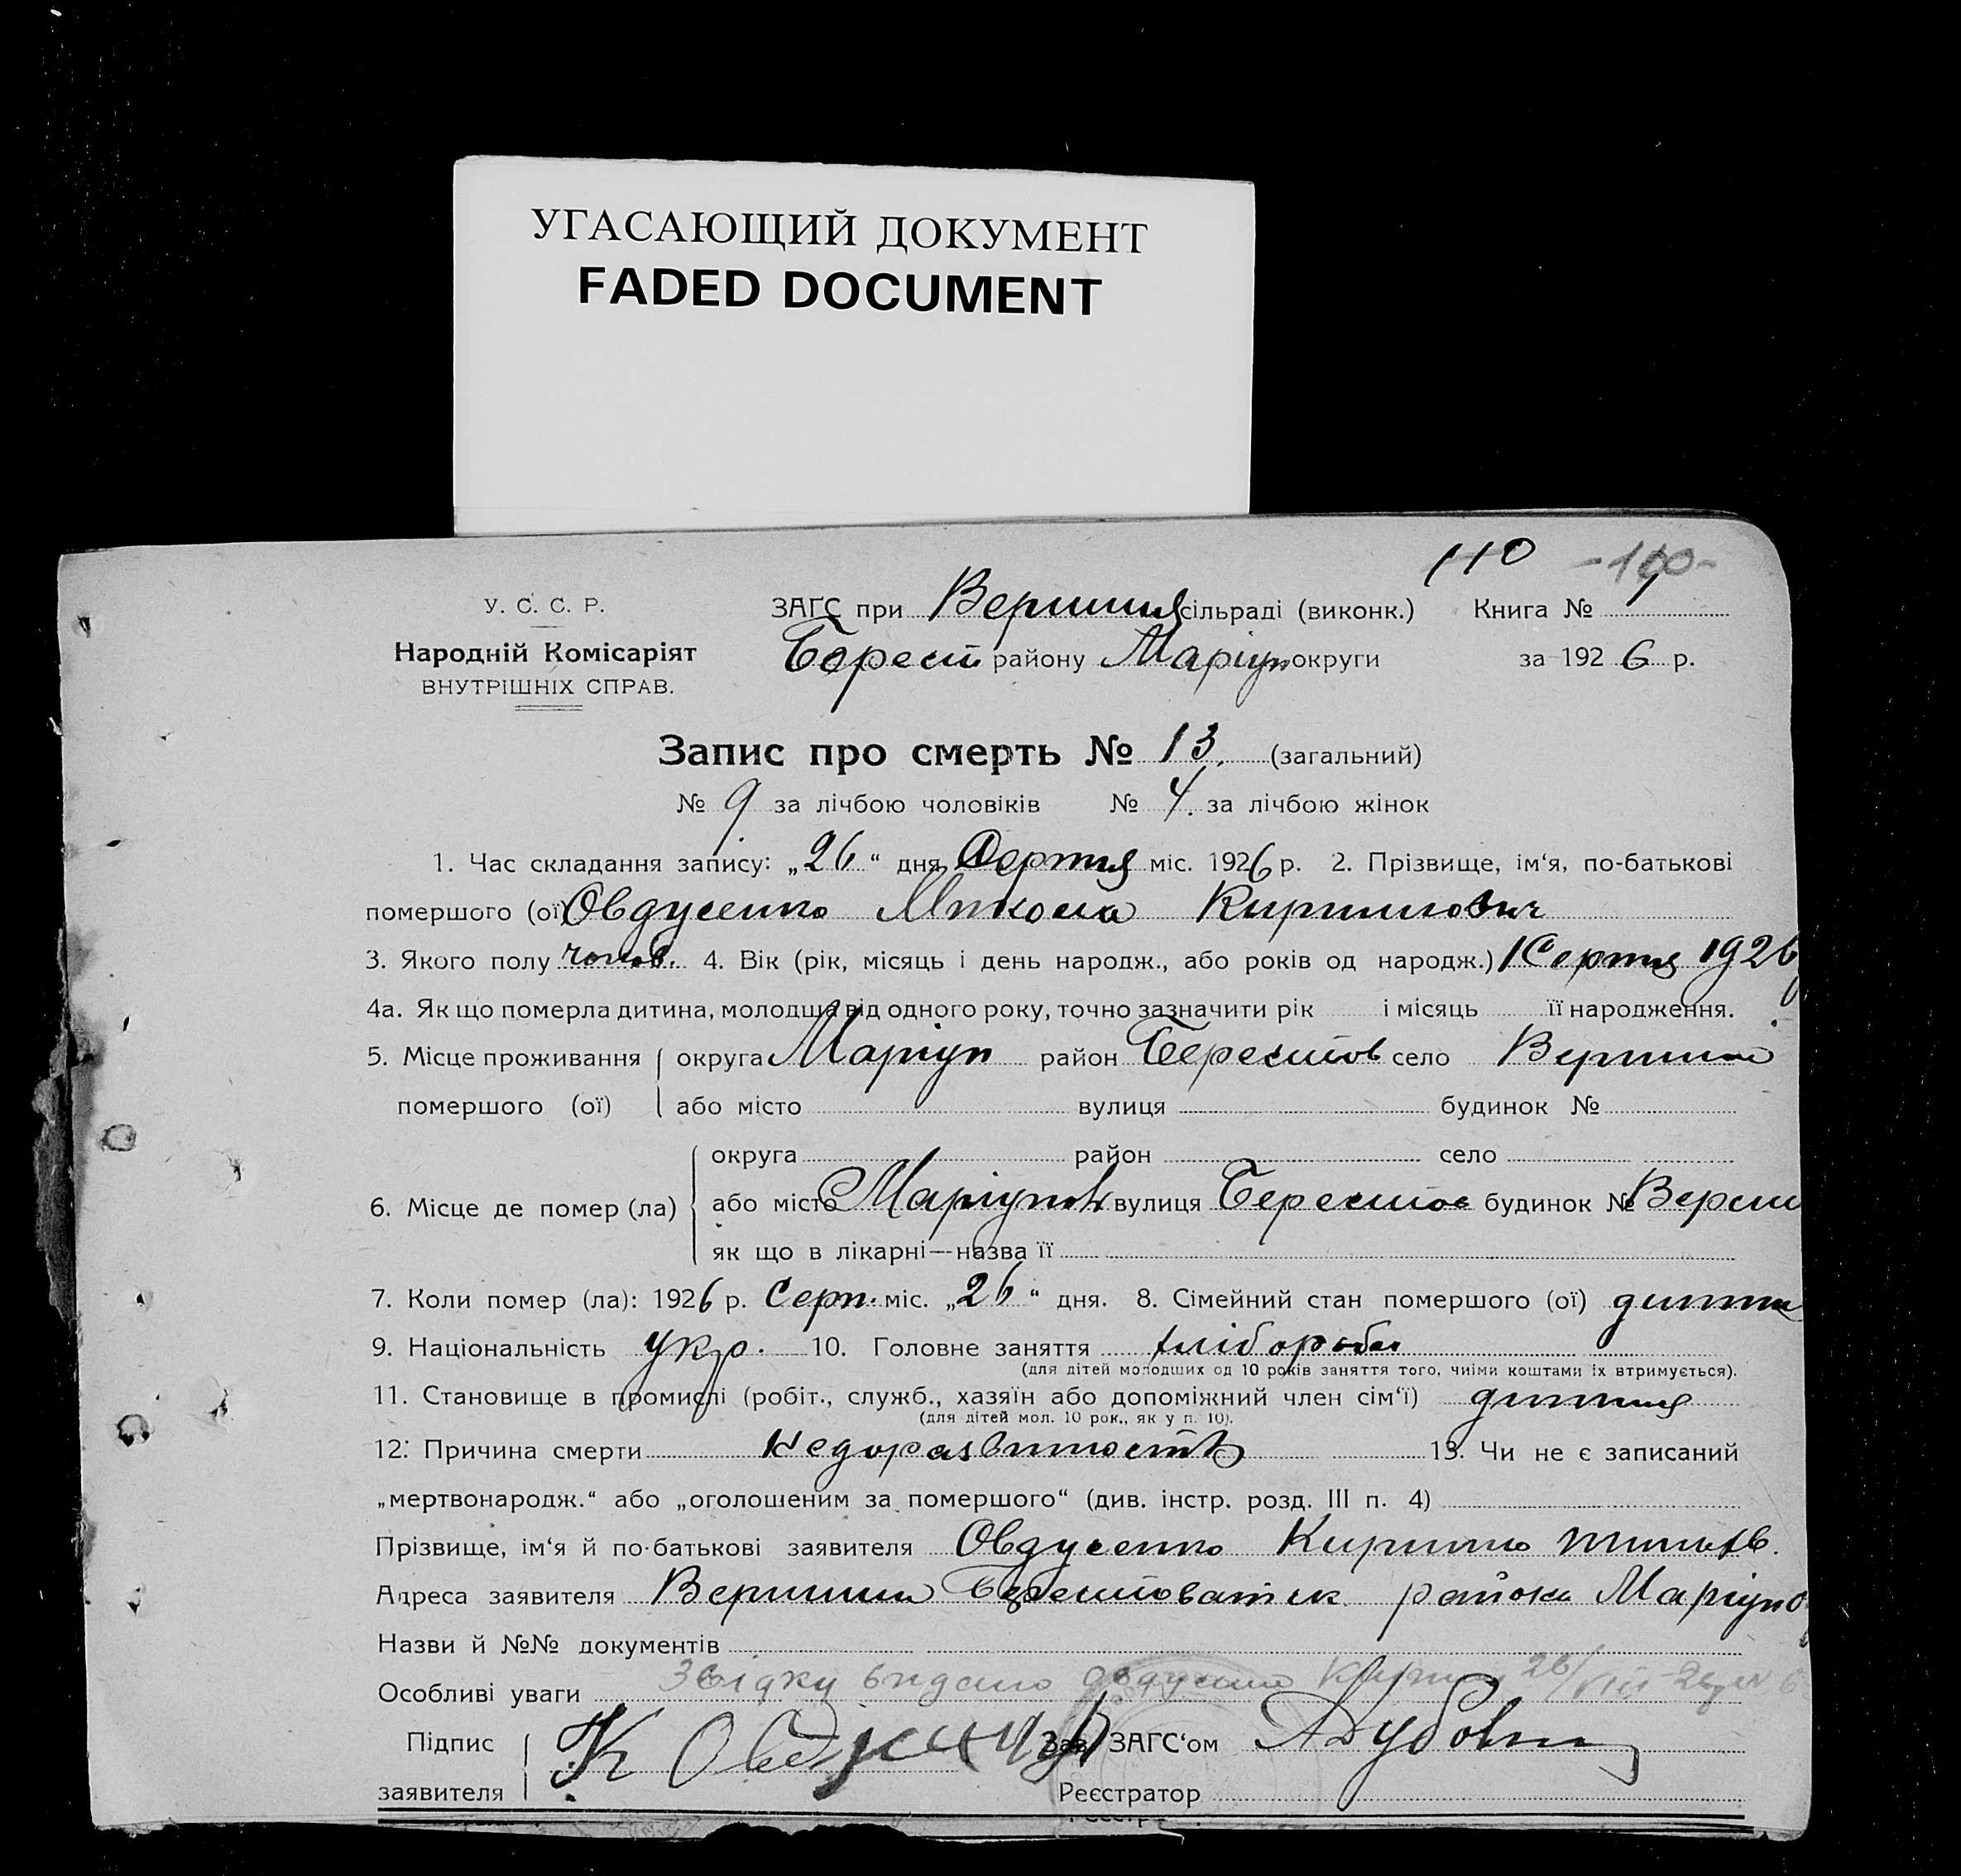 УГАСАЮЩИЙ ДОКУМЕНТ
FADED DOCUMENT
110 -110-
У. С. С. Р.
Народній Комісаріят
ВНУТРІШНІХ СПРАВ.
ЗАГС при Вершин сільраді (виконк.) Книга № 1
Берест району Маріуп округи за 1926 р.
Запис про смерть № 13. (загальний)
№ 9 за лічбою чоловіків № 4. за лічбою жінок
1. Час складання запису: „26“ дня Серпня міс. 1926 р. 2. Прізвище, ім‘я, по-батькові
помершого (ої) Овдусенко Микола Кирилович
3. Якого полу чолов. 4. Вік (рік, місяць і день народж., або років од народж.) 1 Серпня 1926
4а. Як що померла дитина, молодща від одного року, точно зазначити рік і місяць її народження.
5. Місце проживання округа Маріуп район Берестов село Вершини
помершого (ої) або місто вулиця будинок №
округа район село
6. Місце де помер (ла) або місто Маріупол вулиця Берестов будинок № Верши
як що в лікарні—назва її
7. Коли помер (ла): 1926 р. Серп. міс. „26“ дня. 8. Сімейний стан помершого (ої) дитина
9. Національність укр. 10. Головне заняття хлібороби
(для дітей молодших од 10 років заняття того, чиїми коштами їх втримується).
11. Становище в промислі (робіт., служб., хазяїн або допоміжний член сім‘ї) дитина
(для дітей мол. 10 рок., як у п. 10).
12. Причина смерти Недоразвитость 13. Чи не є записаний
„мертвонародж.“ або „оголошеним за помершого“ (див. інстр. розд. III п. 4)
Прізвище, ім‘я й по-батькові заявителя Овдусенко Кирило
Адреса заявителя Вершини Берестоватск района Маріупо
Назви й №№ документів
Особливі уваги Звідку видано Овдусенко Кирилу 26/VIII
Підпис К Зав. ЗАГС‘ом Дубовик
заявителя Реєстратор